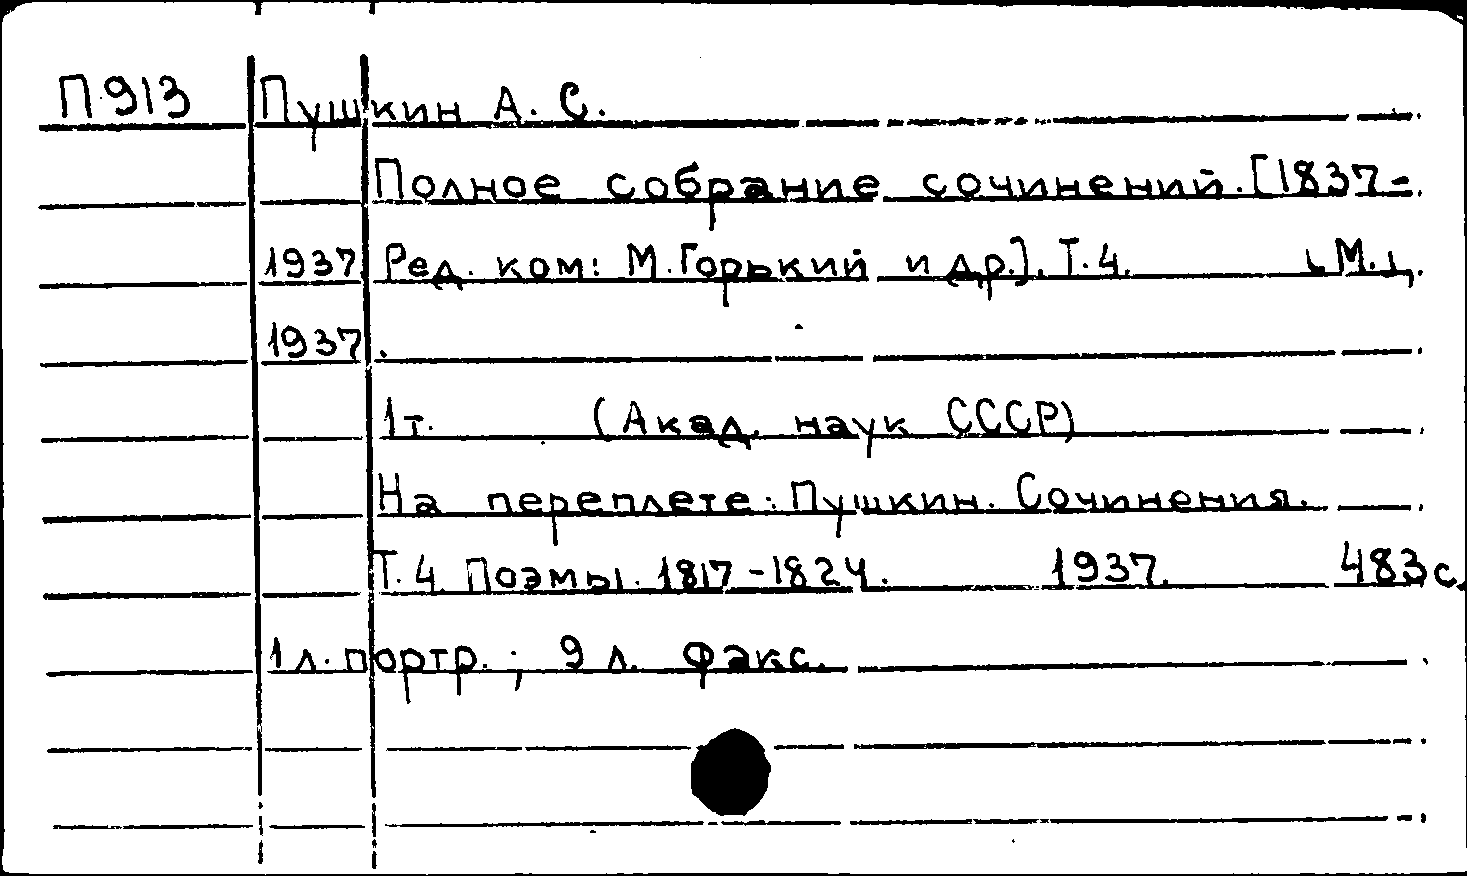 П913 Пушкин А. С.
Полное собрание сочинений. [1837-
1937. Ред. ком: М. Горький и др.]. Т.4. [М.],
1937.
1т. (Акад. наук СССР)
На переплете: Пушкин. Сочинения.
Т.4. Поэмы. 1817-1824. 1937. 483 с.
1 л. портр.; 9 л. факс.